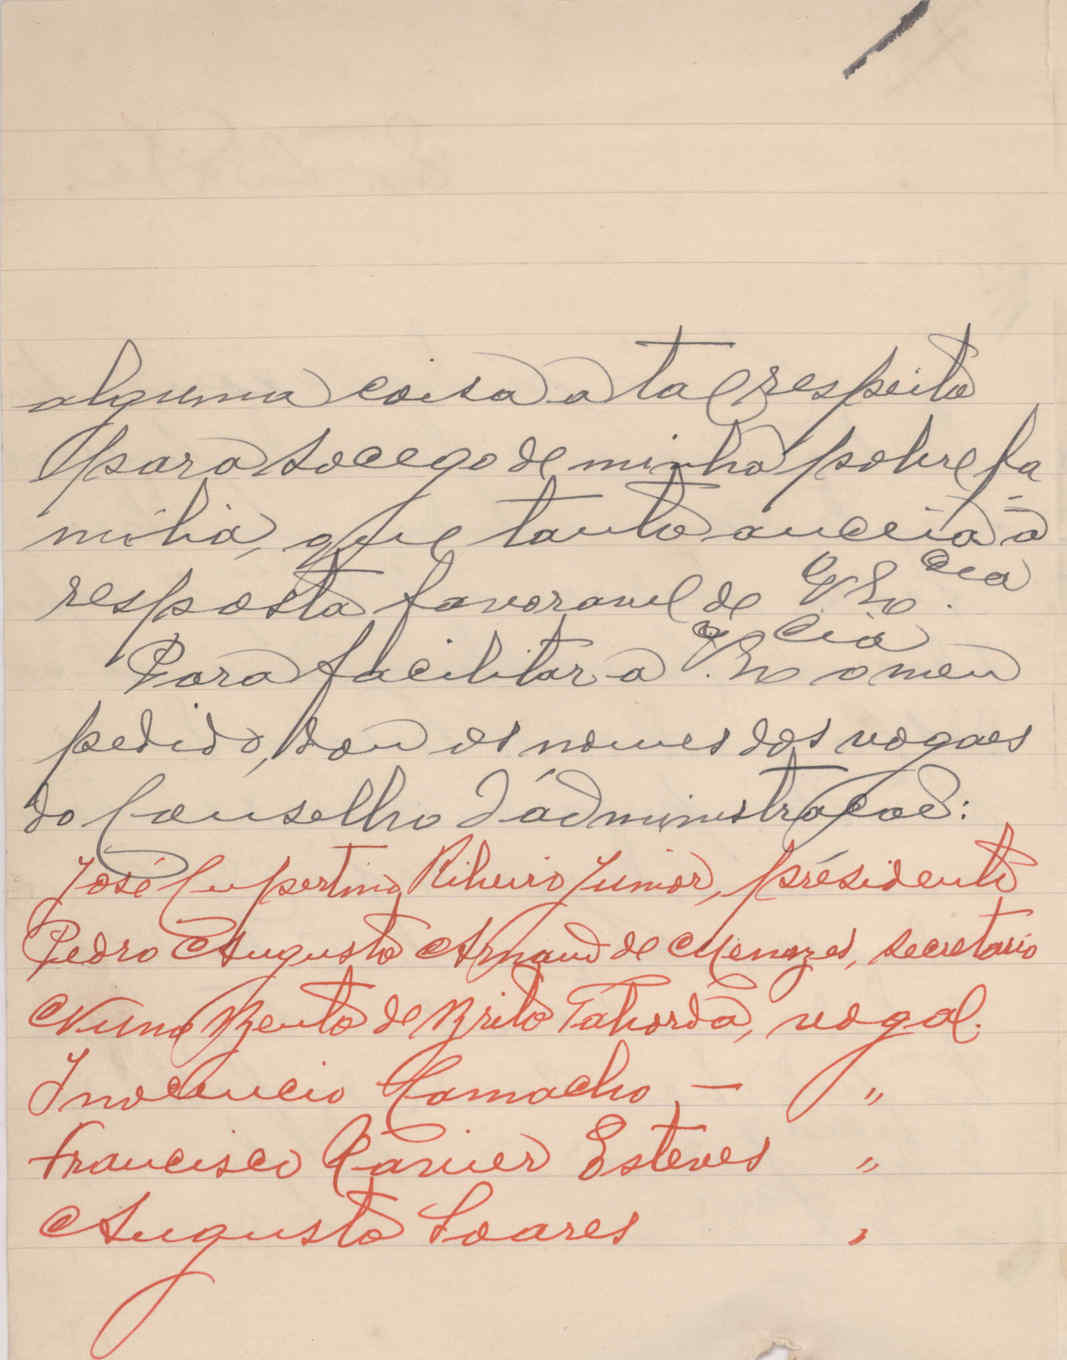 alguma coisa a tal respeito
para socego de minha pobre fa
milia, que tanto anceia a
resposta favoravel de V. Ex.cia
Para facilitar a V. Ex.cia o meu
pedido, dou os nomes dos vogaes
do Conselho d'administração:
José Cupertino Ribeiro Junior, presidente
Pedro Augusto Arnaud de Menezes, secretario
Nuno Bento de Brito Taborda, vogal.
Inocencio Camacho — "
Francisco Xavier Esteves "
Augusto Soares "